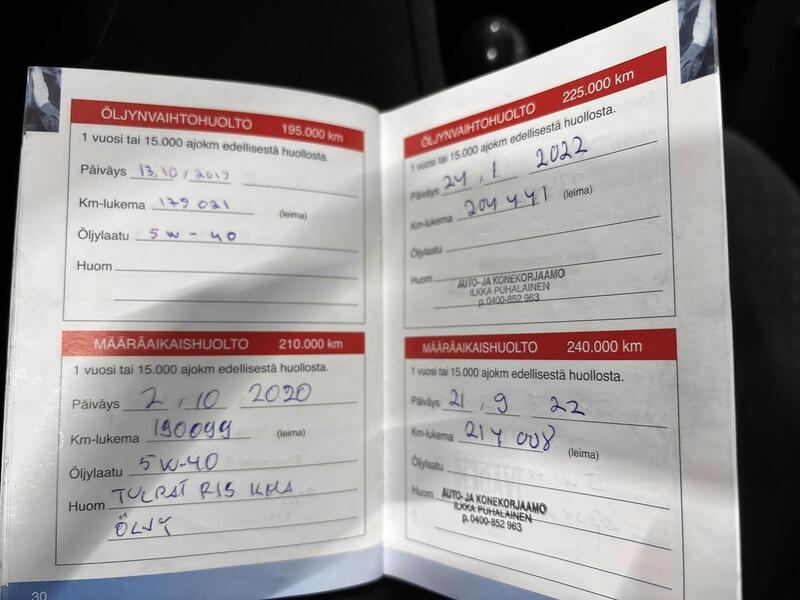 ÖLJYNVAIHTOHUOLTO 195.000 km
1 vuosi tai 15.000 ajokm edellisestä huollosta.
Päiväys 13,10,2019
Km-lukema 179021 (leima)
Öljylaatu 5W-40
Huom
MÄÄRÄAIKAISHUOLTO 210.000 km
1 vuosi tai 15.000 ajokm edellisestä huollosta.
Päiväys 2,10 2020
Km-lukema 190099 (leima)
Öljylaatu 5W-40
Huom TULPAT
ÖLJY
30
ÖLJYNVAIHTOHUOLTO 225.000 km
1 vuosi tai 15.000 ajokm edellisestä huollosta.
Päiväys 24,1 2022
Km-lukema 204441 (leima)
Öljylaatu
Huom
AUTO- JA KONEKORJAAMO
ILKKA PUHALAINEN
p.0400-852 963
MÄÄRÄAIKAISHUOLTO 240.000 km
1 vuosi tai 15.000 ajokm edellisestä huollosta.
Päiväys 21,9 22
Km-lukema 214 008 (leima)
Öljylaatu
Huom
AUTO- JA KONEKORJAAMO
ILKKA PUHALAINEN
p.0400-852 963